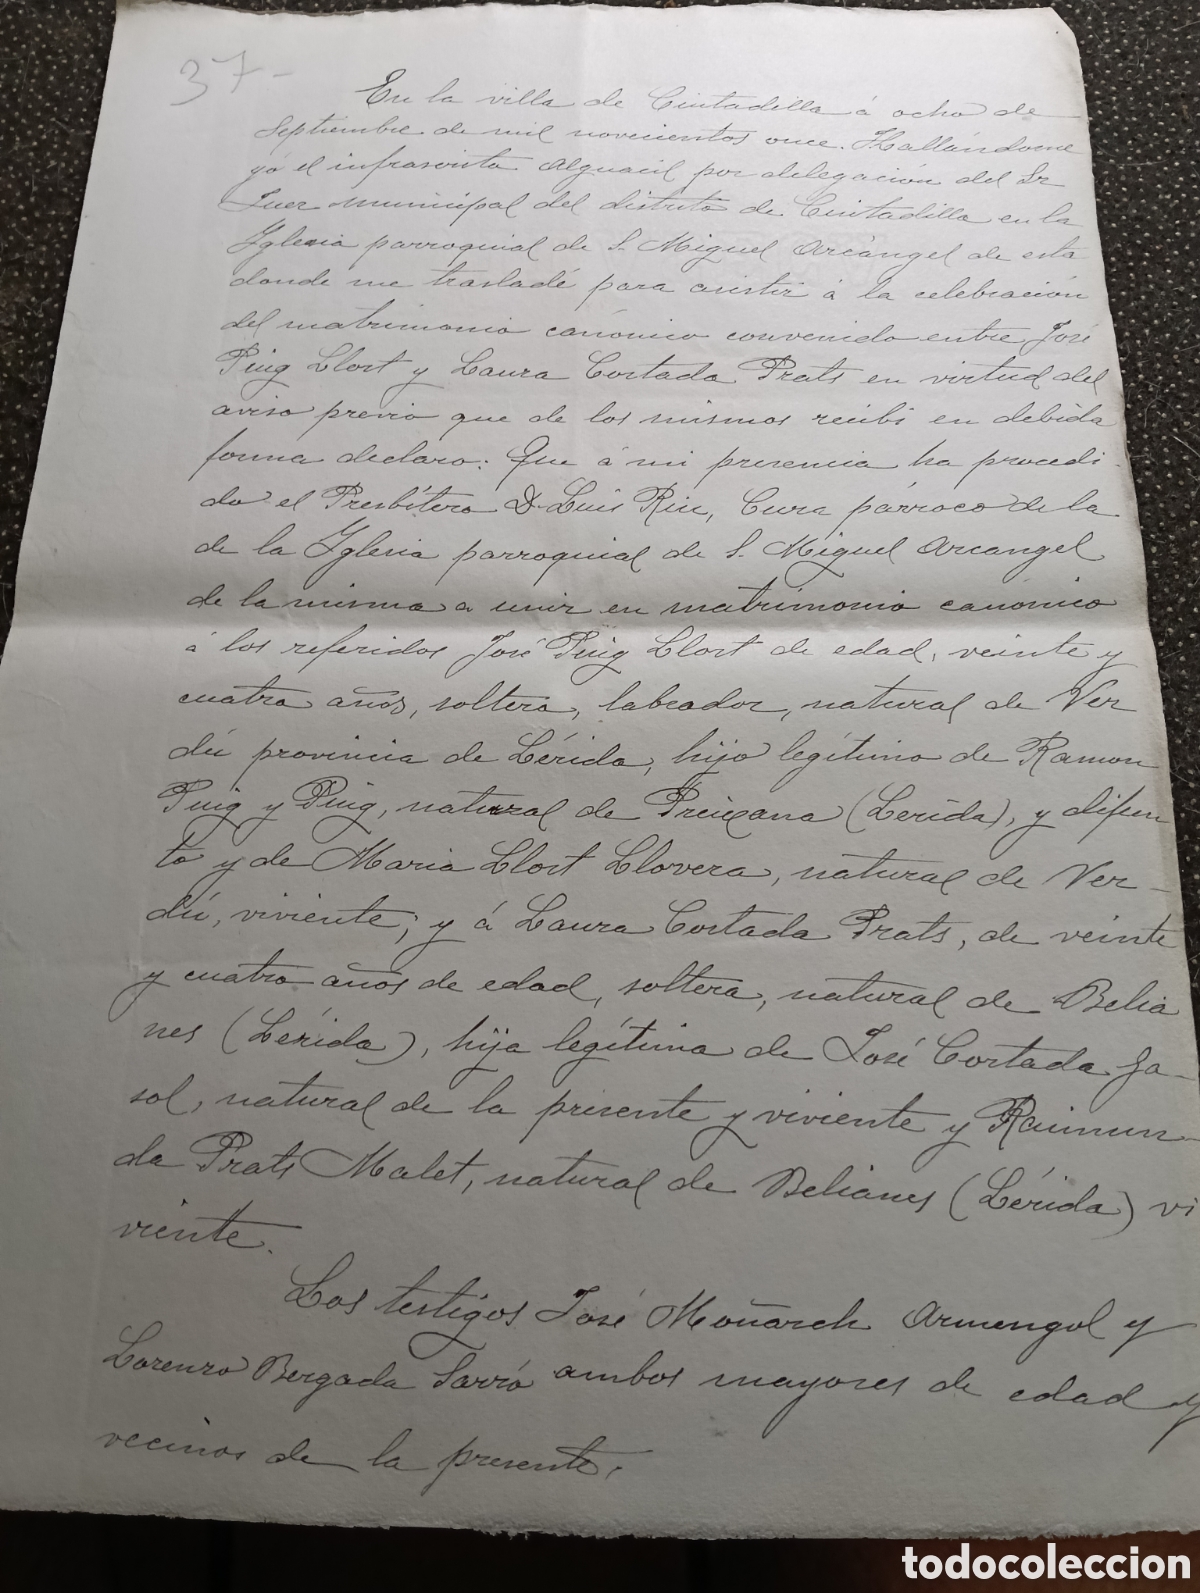 37-
En la villa de Ciutadilla á ocho de
Septiembre de mil novecientos once. Hallándome
yó el infrascrito Alguacil por delegacion del Sr
Juez municipal del distrito de Ciutadilla en la
Iglesia parroquial de S. Miguel Arcángel de esta
donde me trasladé para asistir á la celebración
del matrimonio canónico convenido entre José
Puig Llort y Laura Cortada Prats en virtud del
aviso previo que de los mismos recibi en debida
forma declaro: Que á mi presencia ha procedi
do el Presbítero D. Luis Riu, Cura párroco de la
de la Iglesia parroquial de S. Miguel Arcangel
de la misma a unir en matrimonio canónico
á los referidos José Puig Llort de edad, veinte y
cuatro años, soltero, labrador, natural de Ver
dú provincia de Lérida, hijo legítimo de Ramon
Puig y Puig, natural de Preixana (Lerida), y difun
to y de Maria Llort Llovera, natural de Ver-
dú, viviente; y á Laura Cortada Prats, de veinte
y cuatro años de edad, soltera, natural de Belia
nes (Lérida), hija legítima de José Cortada Ga-
sol, natural de la presente y viviente y Raimun-
da Prats Malet, natural de Belianes (Lérida) vi
viente.
Los testigos José Moñarch Armengol y
Lorenzo Bergada Sarró ambos mayores de edad y
vecinos de la presente.
todocoleccion